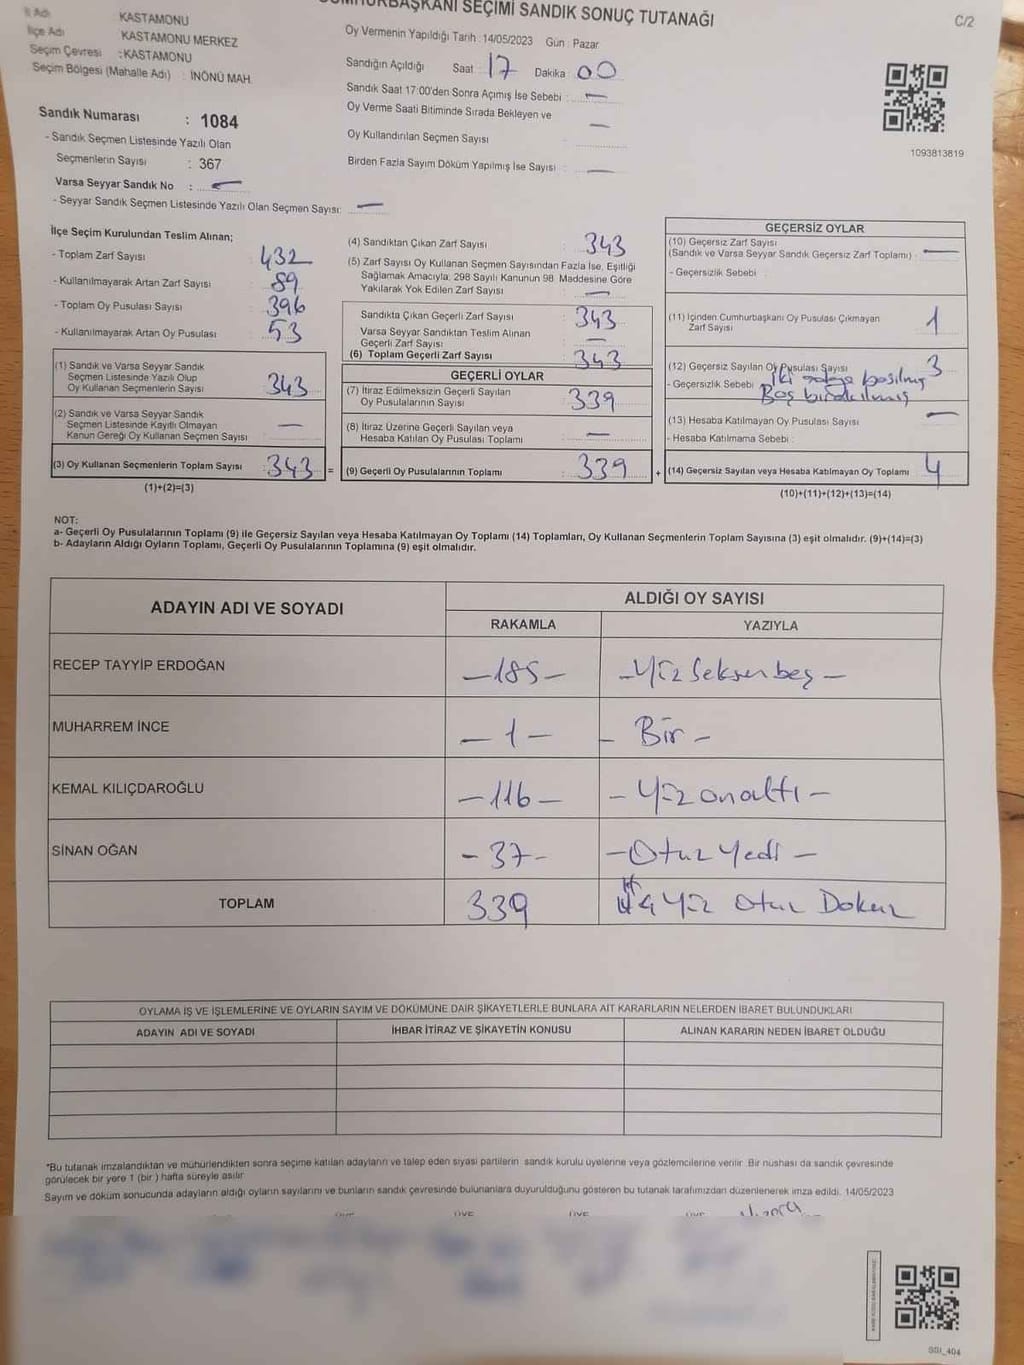 CUMHURBAŞKANI SEÇİMİ SANDIK SONUÇ TUTANAĞI
C/2
İl Adı : KASTAMONU
İlçe Adı KASTAMONU MERKEZ
Seçim Çevresi : KASTAMONU
Seçim Bölgesi (Mahalle Adı) : İNÖNÜ MAH.
Oy Vermenin Yapıldığı Tarih : 14/05/2023 Gün : Pazar
Sandığın Açıldığı Saat : 17 Dakika : 00
Sandık Saat 17:00'den Sonra Açımış İse Sebebi : —
Oy Verme Saati Bitiminde Sırada Bekleyen ve
Oy Kullandırılan Seçmen Sayısı —
Birden Fazla Sayım Döküm Yapılmış İse Sayısı : —
1093813819
Sandık Numarası : 1084
- Sandık Seçmen Listesinde Yazılı Olan
Seçmenlerin Sayısı : 367
Varsa Seyyar Sandık No : —
- Seyyar Sandık Seçmen Listesinde Yazılı Olan Seçmen Sayısı: —
İlçe Seçim Kurulundan Teslim Alınan;
- Toplam Zarf Sayısı : 432
- Kullanılmayarak Artan Zarf Sayısı : 89
- Toplam Oy Pusulası Sayısı : 396
- Kullanılmayarak Artan Oy Pusulası : 53
(1) Sandık ve Varsa Seyyar Sandık
Seçmen Listesinde Yazılı Olup
Oy Kullanan Seçmenlerin Sayısı : 343
(2) Sandık ve Varsa Seyyar Sandık
Seçmen Listesinde Kayıtlı Olmayan
Kanun Gereği Oy Kullanan Seçmen Sayısı : —
(3) Oy Kullanan Seçmenlerin Toplam Sayısı : 343 =
(1)+(2)=(3)
(4) Sandıktan Çıkan Zarf Sayısı : 343
(5) Zarf Sayısı Oy Kullanan Seçmen Sayısından Fazla İse, Eşitliği
Sağlamak Amacıyla, 298 Sayılı Kanunun 98. Maddesine Göre
Yakılarak Yok Edilen Zarf Sayısı : —
Sandıkta Çıkan Geçerli Zarf Sayısı : 343
Varsa Seyyar Sandıktan Teslim Alınan
Geçerli Zarf Sayısı : —
(6) Toplam Geçerli Zarf Sayısı : 343
GEÇERLİ OYLAR
(7) İtiraz Edilmeksizin Geçerli Sayılan
Oy Pusulalarının Sayısı : 339
(8) İtiraz Üzerine Geçerli Sayılan veya
Hesaba Katılan Oy Pusulası Toplamı : —
(9) Geçerli Oy Pusulalarının Toplamı : 339 +
GEÇERSİZ OYLAR
(10) Geçersiz Zarf Sayısı
(Sandık ve Varsa Seyyar Sandık Geçersiz Zarf Toplamı) : —
- Geçersizlik Sebebi :
(11) İçinden Cumhurbaşkanı Oy Pusulası Çıkmayan
Zarf Sayısı : 1
(12) Geçersiz Sayılan Oy Pusulası Sayısı : 3
- Geçersizlik Sebebi : İki adaya basılmış
Boş bırakılmış
(13) Hesaba Katılmayan Oy Pusulası Sayısı : —
- Hesaba Katılmama Sebebi :
(14) Geçersiz Sayılan veya Hesaba Katılmayan Oy Toplamı : 4
(10)+(11)+(12)+(13)=(14)
NOT:
a- Geçerli Oy Pusulalarının Toplamı (9) ile Geçersiz Sayılan veya Hesaba Katılmayan Oy Toplamı (14) Toplamları, Oy Kullanan Seçmenlerin Toplam Sayısına (3) eşit olmalıdır. (9)+(14)=(3)
b- Adayların Aldığı Oyların Toplamı, Geçerli Oy Pusulalarının Toplamına (9) eşit olmalıdır.
ADAYIN ADI VE SOYADI
ALDIĞI OY SAYISI
RAKAMLA YAZIYLA
RECEP TAYYİP ERDOĞAN —185— —Yüz Seksen beş—
MUHARREM İNCE —1— —Bir—
KEMAL KILIÇDAROĞLU —116— —Yüz on altı—
SİNAN OĞAN —37— —Otuz Yedi—
TOPLAM 339 Yüz Otuz Dokuz
OYLAMA İŞ VE İŞLEMLERİNE VE OYLARIN SAYIM VE DÖKÜMÜNE DAİR ŞİKAYETLERLE BUNLARA AİT KARARLARIN NELERDEN İBARET BULUNDUKLARI
ADAYIN ADI VE SOYADI İHBAR İTİRAZ VE ŞİKAYETİN KONUSU ALINAN KARARIN NEDEN İBARET OLDUĞU
*Bu tutanak imzalandıktan ve mühürlendikten sonra seçime katılan adayların ve talep eden siyasi partilerin sandık kurulu üyelerine veya gözlemcilerine verilir. Bir nüshası da sandık çevresinde
görülecek bir yere 1 (bir) hafta süreyle asılır.
Sayım ve döküm sonucunda adayların aldığı oyların sayılarını ve bunların sandık çevresinde bulunanlara duyurulduğunu gösteren bu tutanak tarafımızdan düzenlenerek imza edildi. 14/05/2023
ÜYE ÜYE ÜYE ÜYE
SSI_404